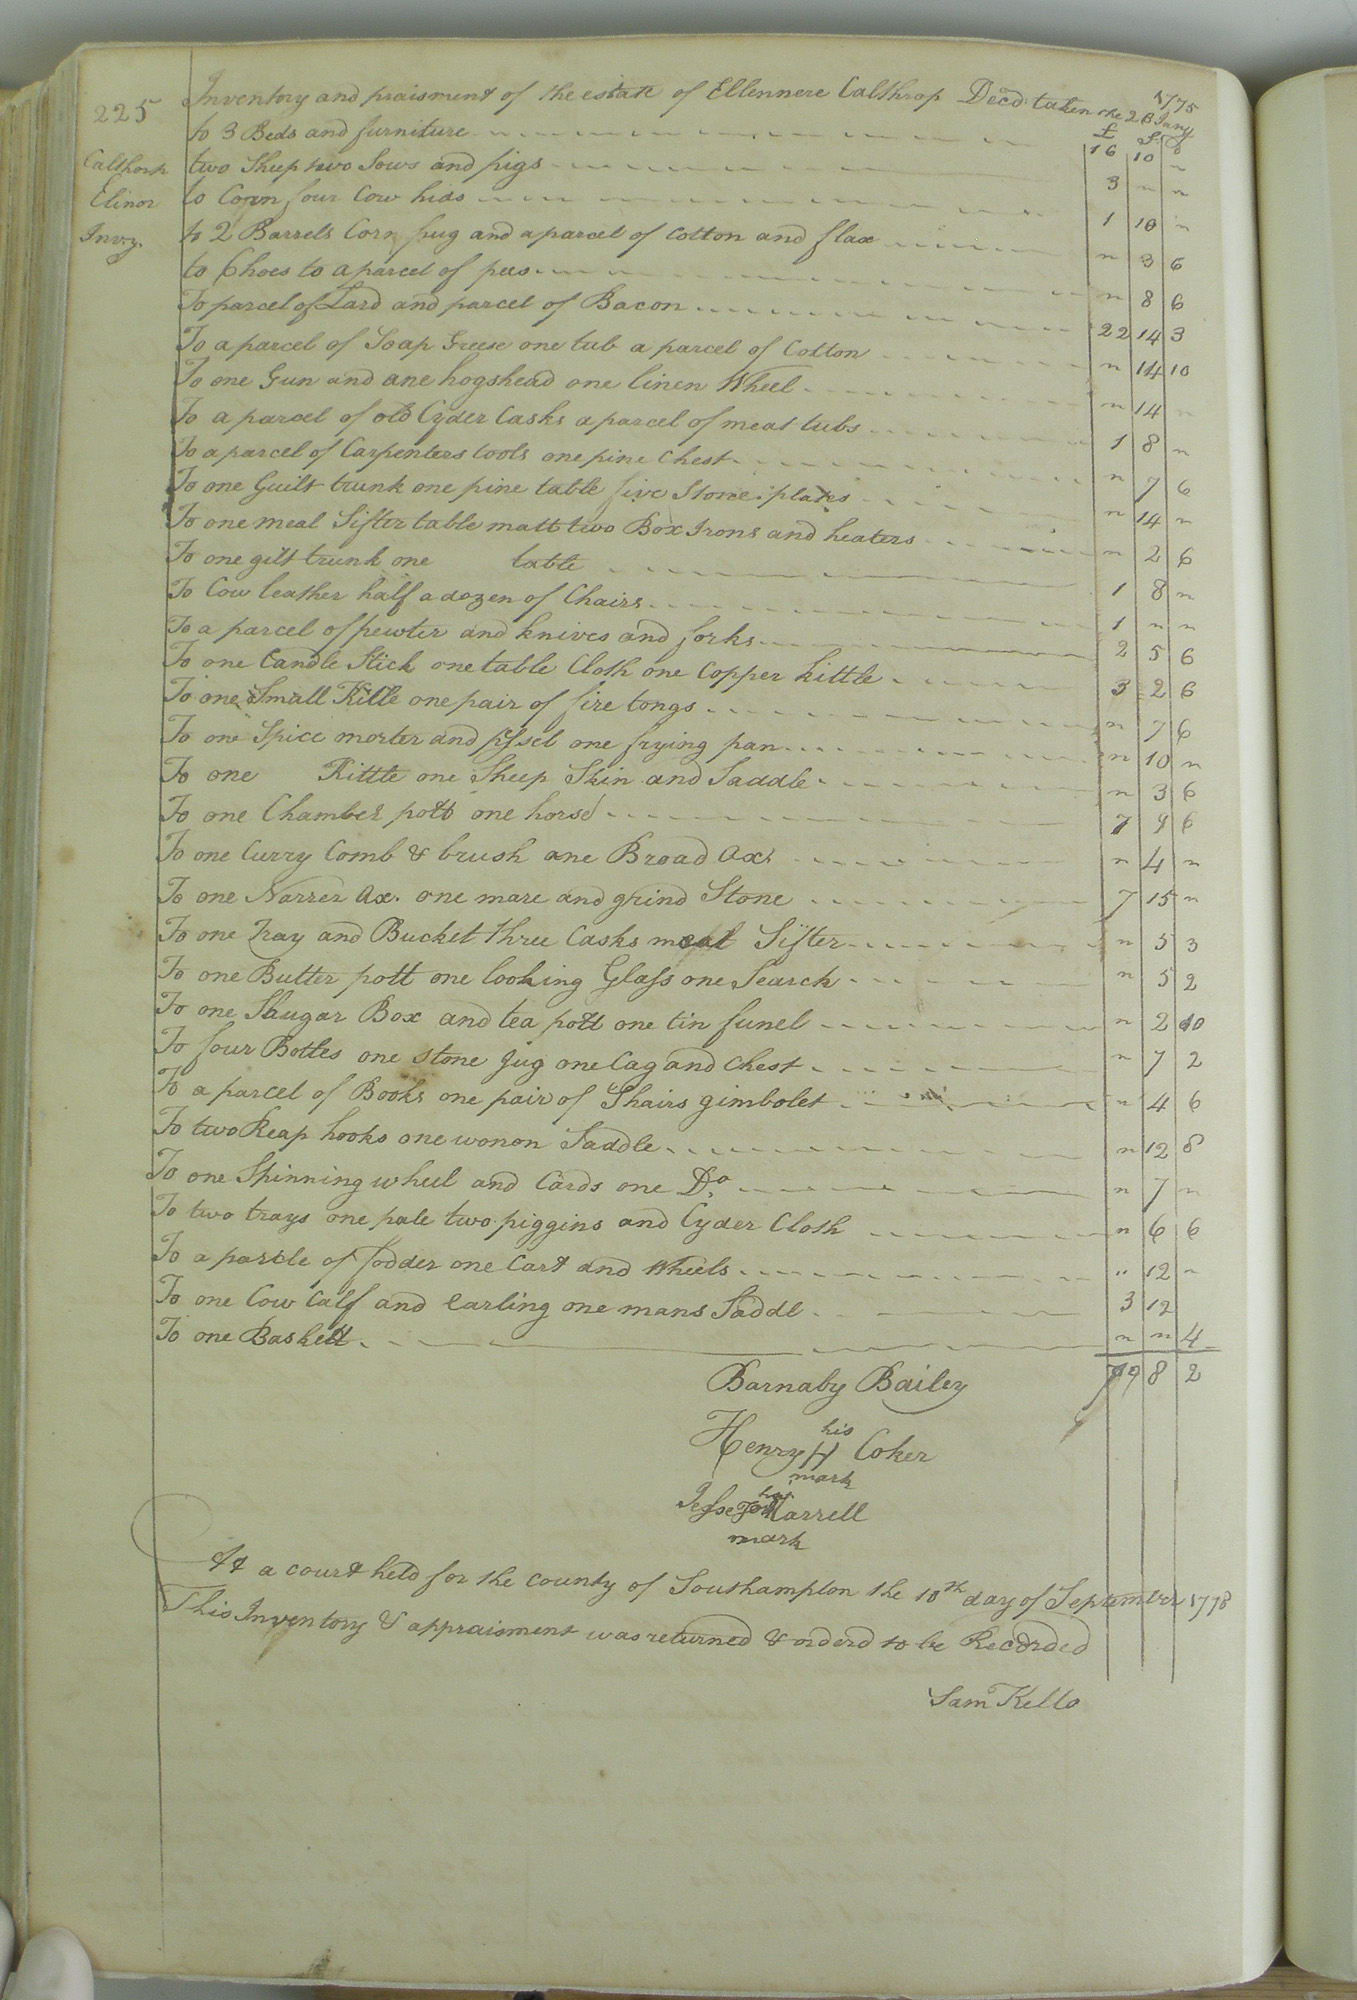 225
Calthorp
Elinor
Invy.
Inventory and praisment of the estate of Ellennere Calthrop Decd taken the 28 Jany 1775
£ S d
to 3 Beds and furniture 16 10 "
two Sheep two Sows and pigs 3 " "
to Corn four Cow hids 1 10 "
to 2 Barrels Corn fug and a parcel of Cotton and flax " 3 6
to Choes to a parcel of pees " 8 6
To parcel of Lard and parcel of Bacon 22 14 3
To a parcel of Soap Greese one tub a parcel of Cotton " 14 10
To one Gun and one hogshead one linen Wheel " 14 "
To a parcel of old Cyder Casks a parcel of meat tubs 1 8 "
To a parcel of Carpenters tools one pine Chest " 7 6
To one Guilt trunk one pine table five Stone plates " 14 "
To one meal Sifter table matt two Box Irons and heaters " 2 6
To one gilt trunk one table 1 8 "
To Cow leather half a dozen of Chairs 1 " "
To a parcel of pewter and knives and forks 2 5 6
To one Candle Stick one table Cloth one Copper kittle 3 2 6
To one Small Kitle one pair of fire tongs " 7 6
To one Spice morter and pessel one frying pan " 10 "
To one Kittle one Sheep Skin and Saddle " 3 6
To one Chamber pott one horse 7 9 6
To one Curry Comb & brush one Broad Ax " 4 "
To one Narrer Ax. one mare and grind Stone 7 15 "
To one Tray and Bucket three Casks meal Sifter " 5 3
To one Butter pott one looking Glass one Search " 5 2
To one Shugar Box and tea pott one tin funel " 2 10
To four Bottes one stone Jug one Cag and Chest " 7 2
To a parcel of Books one pair of Shairs gimbolet " 4 6
To two Reap hooks one womon Saddle " 12 8
To one Spinning wheel and Cards one Do. " 7 "
To two trays one pale two piggins and Cyder Cloth " 6 6
To a parcle of fodder one Cart and Wheels " 12 "
To one Cow Calf and Earling one mans Saddl 3 12
To one Baskett " " 4
79 8 2
Barnaby Bailey
his
Henry H Coker
mark
his
Jesse Harrell
mark
At a court held for the county of Southampton the 10th day of September 1778
This Inventory & appraisment was returned & orderd to be Recorded
Sam Kello